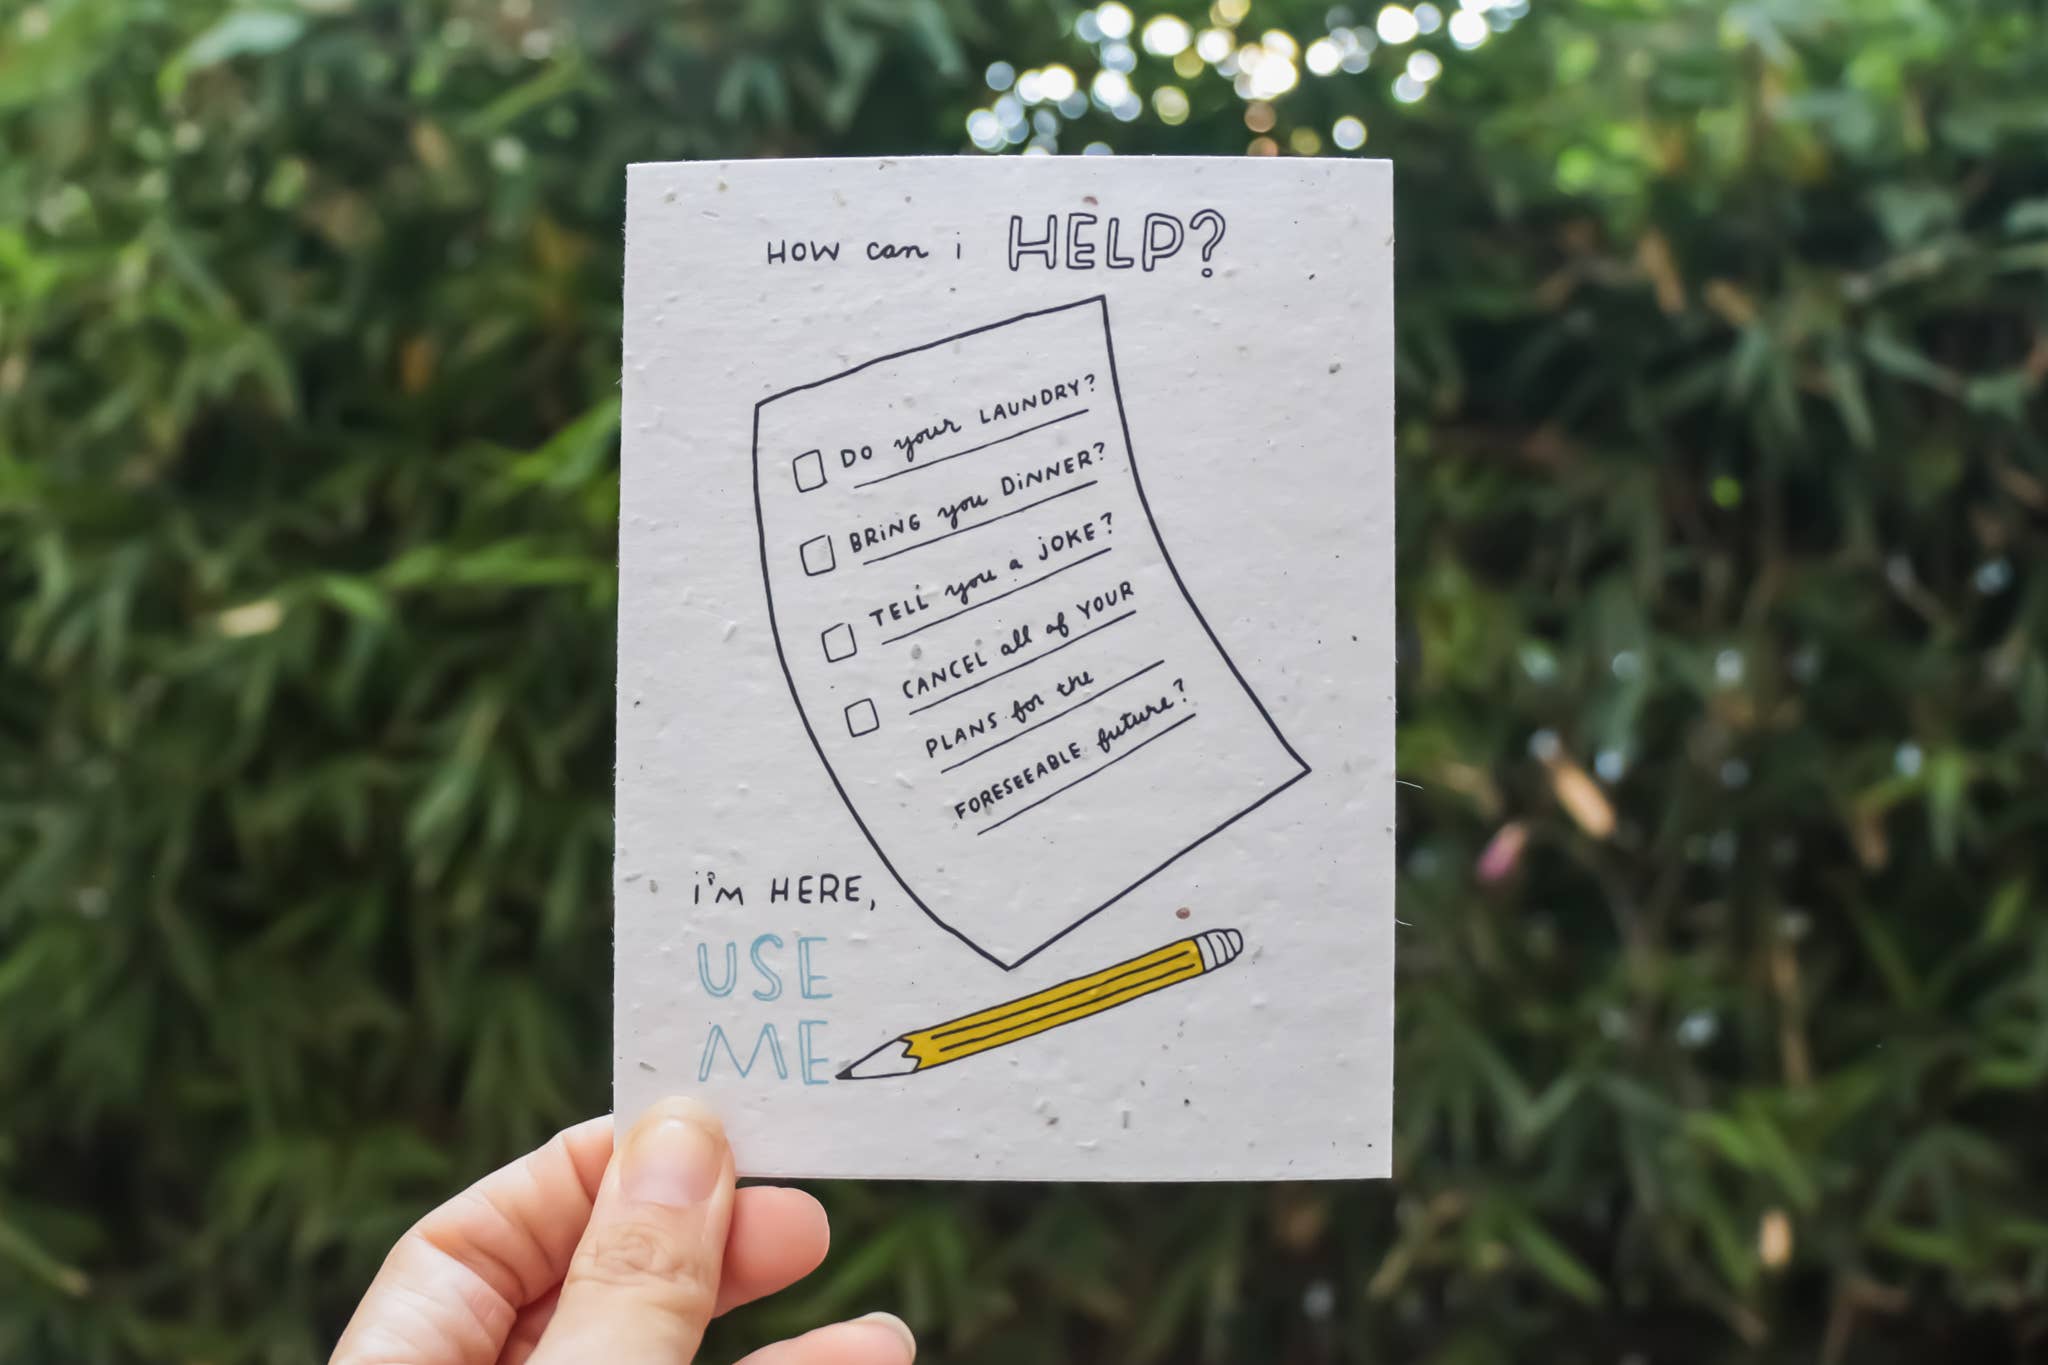 HOW can i HELP?
DO your LAUNDRY?
BRING you DINNER?
TELL you a JOKE?
CANCEL all of YOUR
PLANS for the
FORESEEABLE future?
i'm HERE,
USE
ME